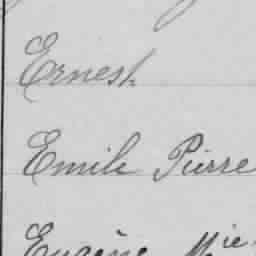 Ernest
Emile Pierre
Eugène Mie